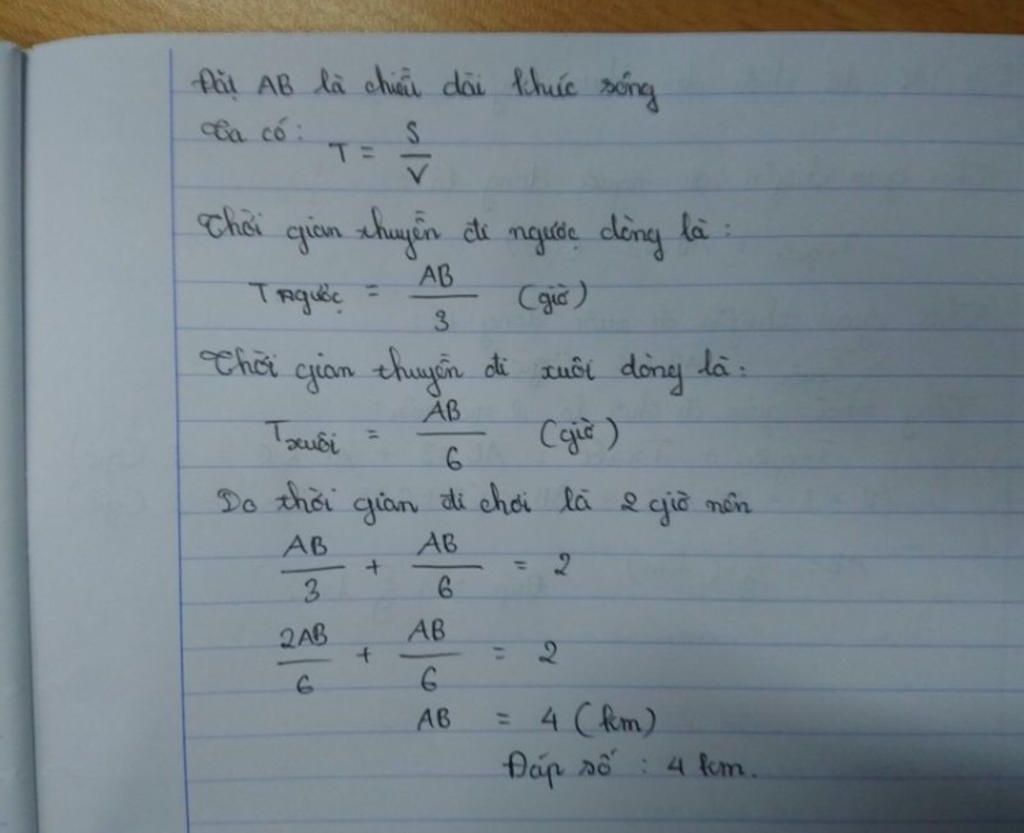 Đặt AB là chiều dài khúc sông
Ta có: T = S/V
Thời gian thuyền đi ngược dòng là :
T ngược = AB/3 (giờ)
Thời gian thuyền đi xuôi dòng là :
T xuôi = AB/6 (giờ)
Do thời gian đi chơi là 2 giờ nên
AB/3 + AB/6 = 2
2AB/6 + AB/6 = 2
AB = 4 (km)
Đáp số : 4 km.